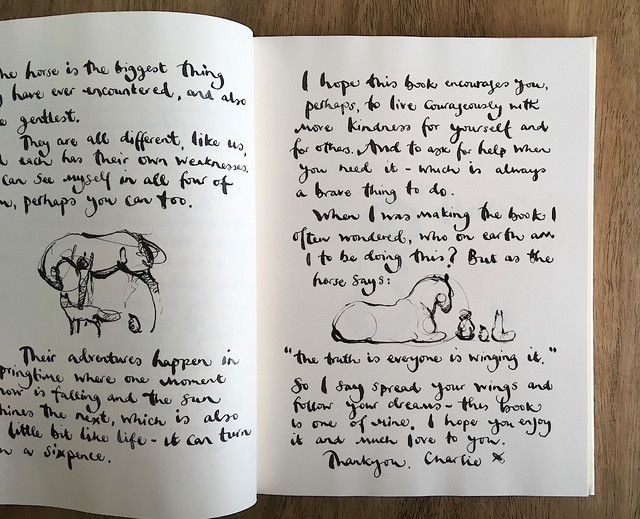 he horse is the biggest thing
have ever encountered, and also
gentlest.
They are all different, like us,
each has their own weaknesses.
can see myself in all four of
perhaps you can too.
Their adventures happen in
pringtime where one moment
now is falling and the sun
hines the next, which is also
little bit like life - it can turn
n a sixpence.
I hope this book encourages you,
perhaps, to live courageously with
more kindness for yourself and
for others. And to ask for help when
you need it - which is always
a brave thing to do.
When I was making the book I
often wondered, who on earth am
I to be doing this? But as the
horse says:
"the truth is everyone is winging it."
So I say spread your wings and
follow your dreams - this book
is one of mine. I hope you enjoy
it and much love to you.
Thankyou. Charlie x